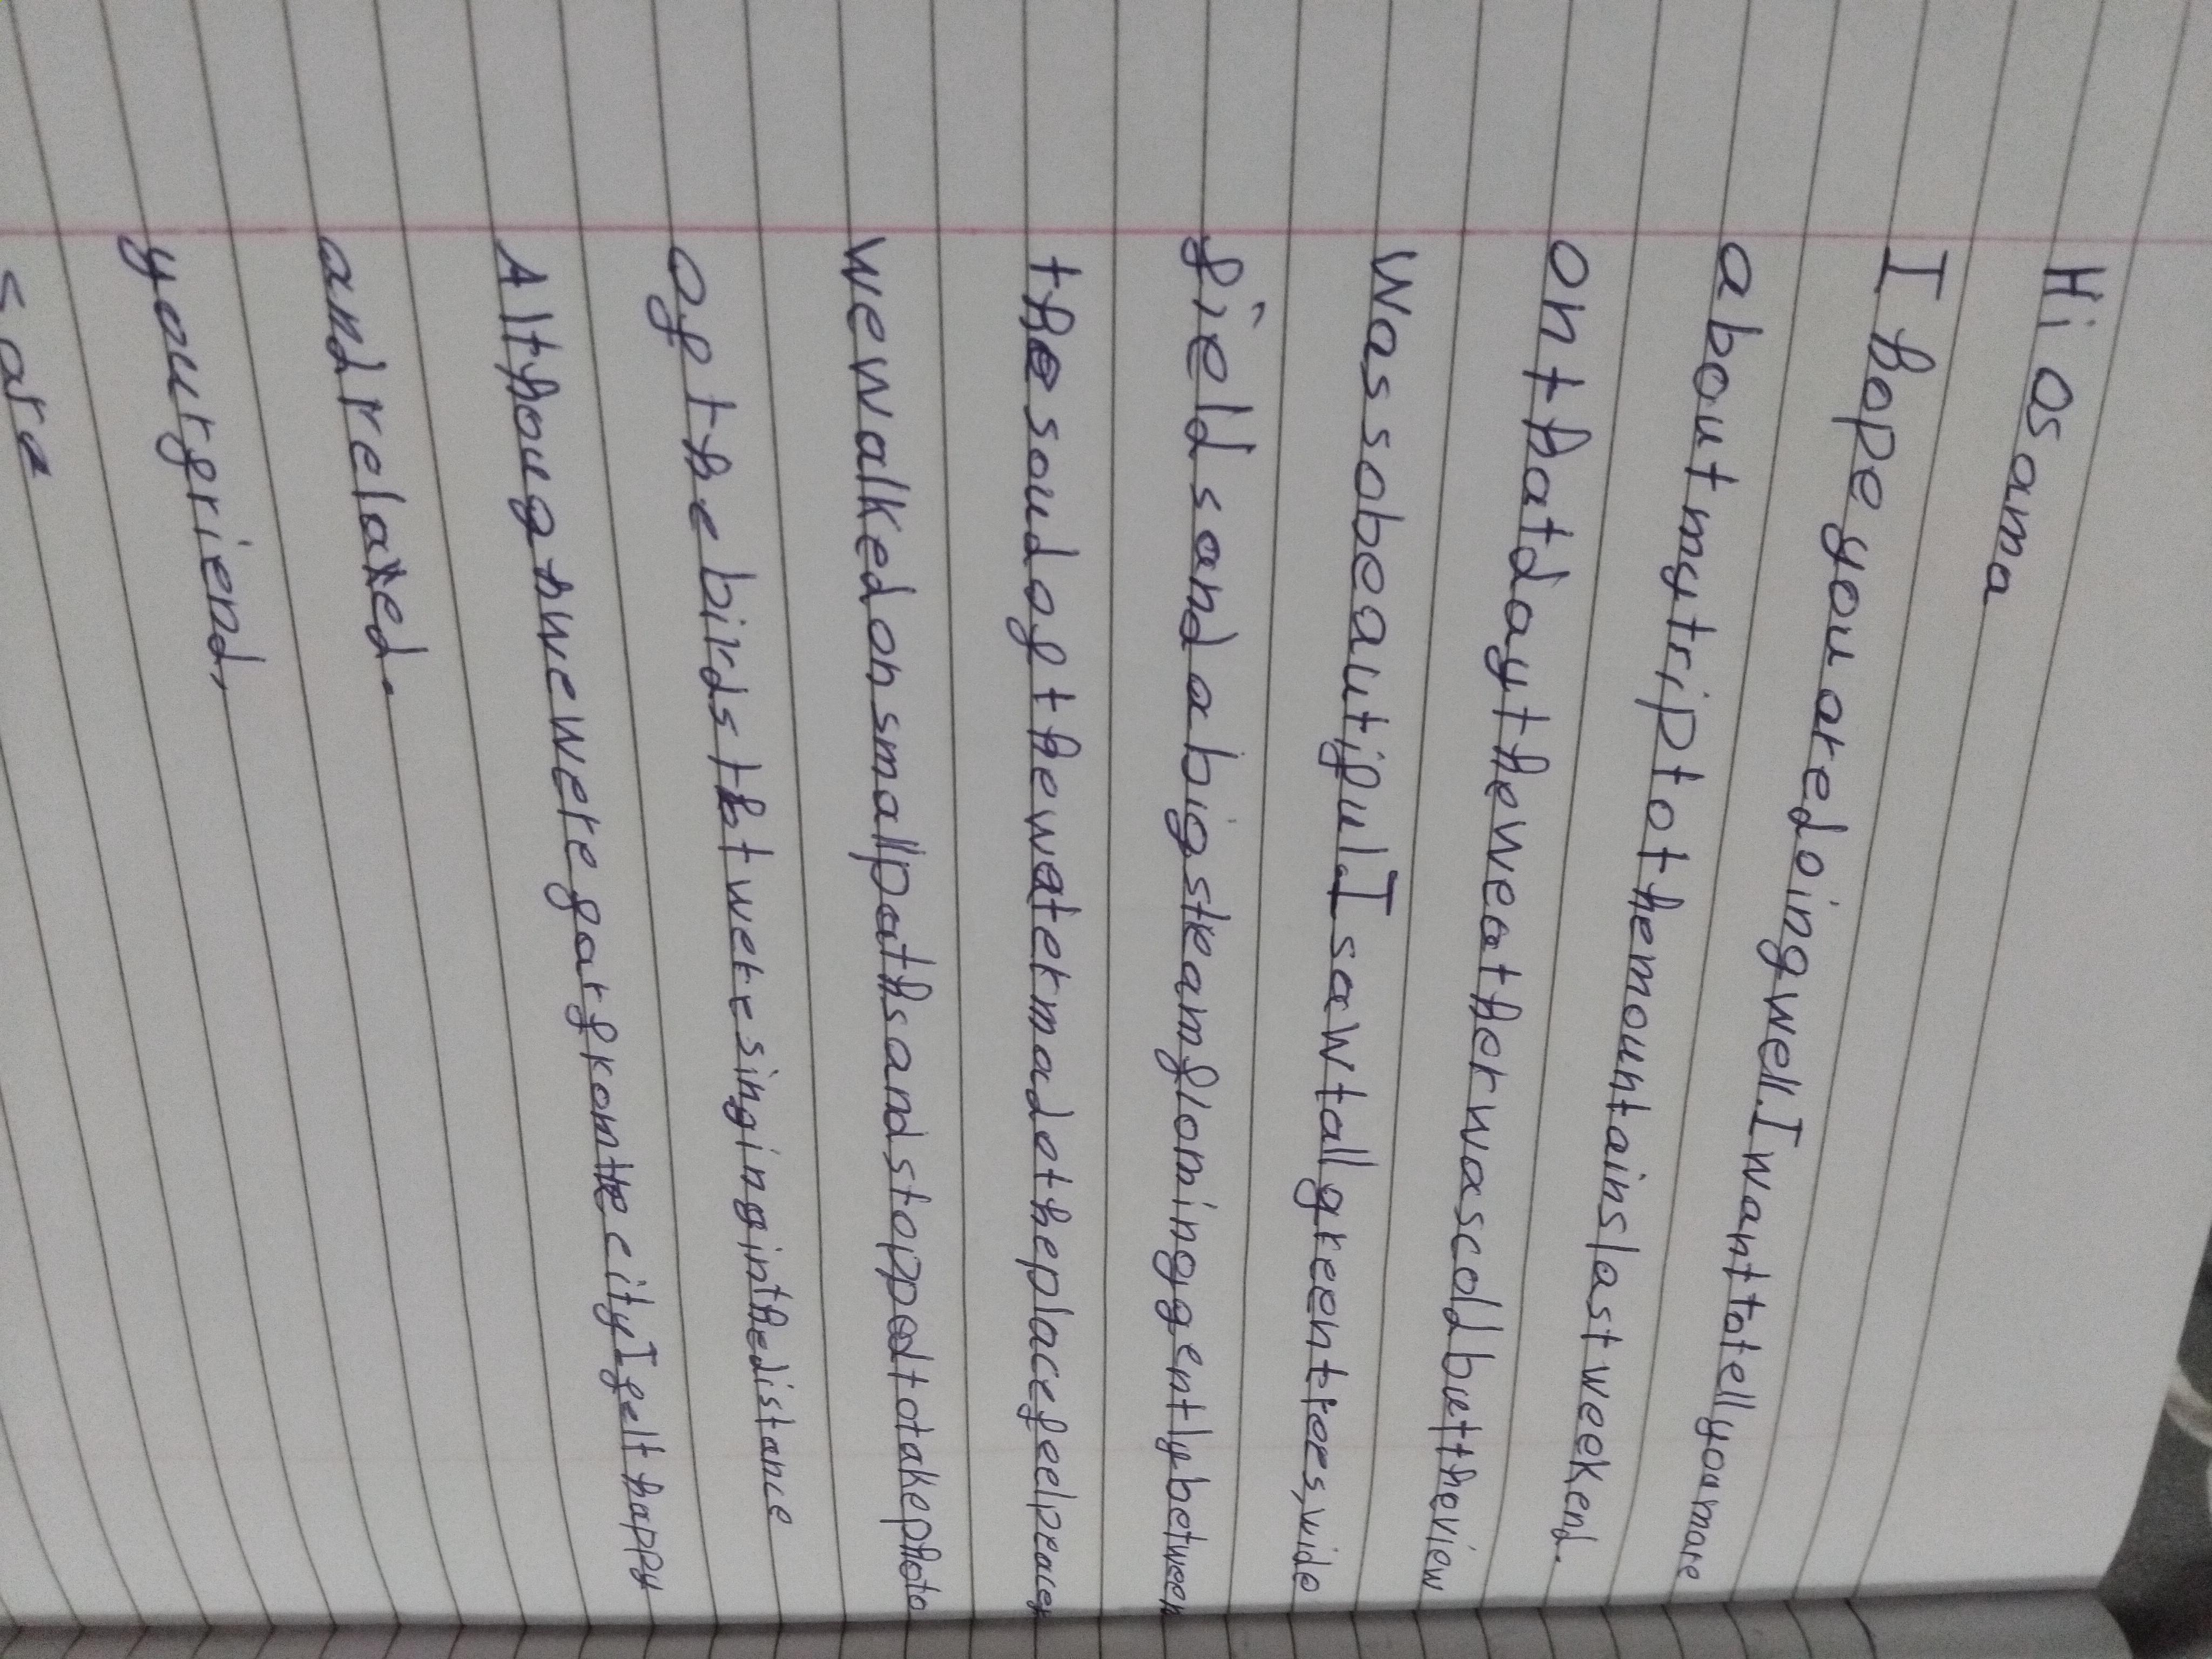 Hi Osama
I hope you are doing well. I want to tell you more
about my trip to the mountains last weekend.
On that day the weather was cold but the view
was so beautiful. I saw tall green trees, wide
fields and a big stream floming gently between
the soud of the water made the place feel
we walked on small paths and stopped to take photo
of the birds that were singing in the distance
Although we were far from the city I felt happy
and relaxed.
your friend,